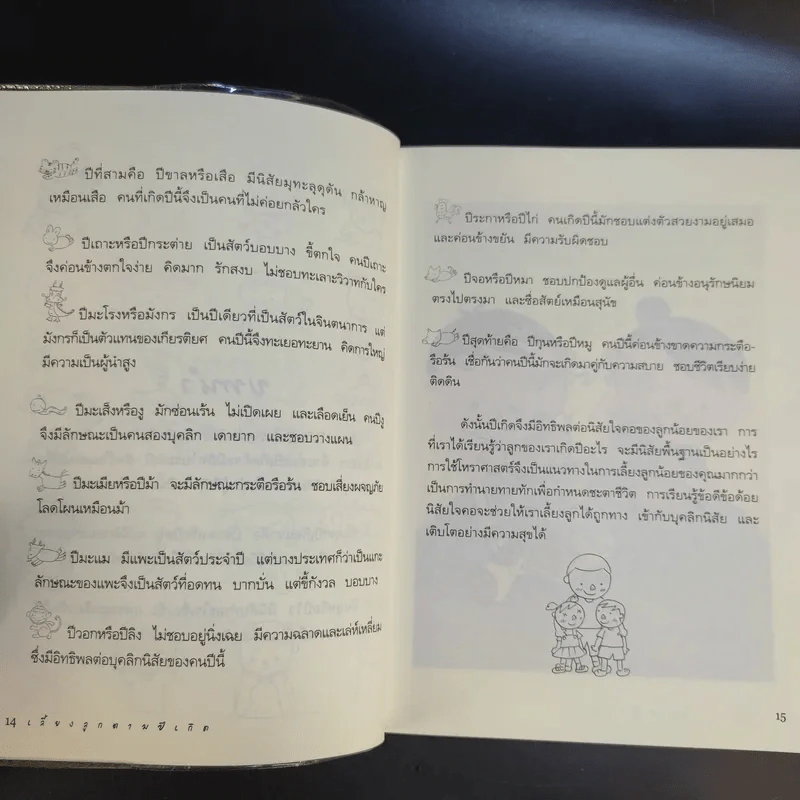 ปีที่สามคือ ปีขาลหรือเสือ มีนิสัยมุทะลุดุดัน กล้าหาญ
เหมือนเสือ คนที่เกิดปีนี้จึงเป็นคนที่ไม่ค่อยกลัวใคร
ปีเถาะหรือปีกระต่าย เป็นสัตว์บอบบาง ขี้ตกใจ คนปีเถาะ
จึงค่อนข้างตกใจง่าย คิดมาก รักสงบ ไม่ชอบทะเลาะวิวาทกับใคร
ปีมะโรงหรือมังกร เป็นปีเดียวที่เป็นสัตว์ในจินตนาการ แต่
มังกรก็เป็นตัวแทนของเกียรติยศ คนปีนี้จึงทะเยอทะยาน คิดการใหญ่
มีความเป็นผู้นำสูง
ปีมะเส็งหรืองู มักซ่อนเร้น ไม่เปิดเผย และเลือดเย็น คนปีงู
จึงมีลักษณะเป็นคนสองบุคลิก เดายาก และชอบวางแผน
ปีมะเมียหรือปีม้า จะมีลักษณะกระตือรือร้น ชอบเสี่ยงผจญภัย
โลดโผนเหมือนม้า
ปีมะแม มีแพะเป็นสัตว์ประจำปี แต่บางประเทศก็ว่าเป็นแกะ
ลักษณะของแพะจึงเป็นสัตว์ที่อดทน บากบั่น แต่ขี้กังวล บอบบาง
ปีวอกหรือปีลิง ไม่ชอบอยู่นิ่งเฉย มีความฉลาดและเล่ห์เหลี่ยม
ซึ่งมีอิทธิพลต่อบุคลิกนิสัยของคนปีนี้
14 เลี้ยงลูกตามปีเกิด
ปีระกาหรือปีไก่ คนเกิดปีนี้มักชอบแต่งตัวสวยงามอยู่เสมอ
และค่อนข้างขยัน มีความรับผิดชอบ
ปีจอหรือปีหมา ชอบปกป้องดูแลผู้อื่น ค่อนข้างอนุรักษนิยม
ตรงไปตรงมา และซื่อสัตย์เหมือนสุนัข
ปีสุดท้ายคือ ปีกุนหรือปีหมู คนปีนี้ค่อนข้างขาดความกระตือ-
รือร้น เชื่อกันว่าคนปีนี้มักจะเกิดมาคู่กับความสบาย ชอบชีวิตเรียบง่าย
ติดดิน
ดังนั้นปีเกิดจึงมีอิทธิพลต่อนิสัยใจคอของลูกน้อยของเรา การ
ที่เราได้เรียนรู้ว่าลูกของเราเกิดปีอะไร จะมีนิสัยพื้นฐานเป็นอย่างไร
การใช้โหราศาสตร์จึงเป็นแนวทางในการเลี้ยงลูกน้อยของคุณมากกว่า
เป็นการทำนายทายทักเพื่อกำหนดชะตาชีวิต การเรียนรู้ข้อดีข้อด้อย
นิสัยใจคอจะช่วยให้เราเลี้ยงลูกได้ถูกทาง เข้ากับบุคลิกนิสัย และ
เติบโตอย่างมีความสุขได้
15